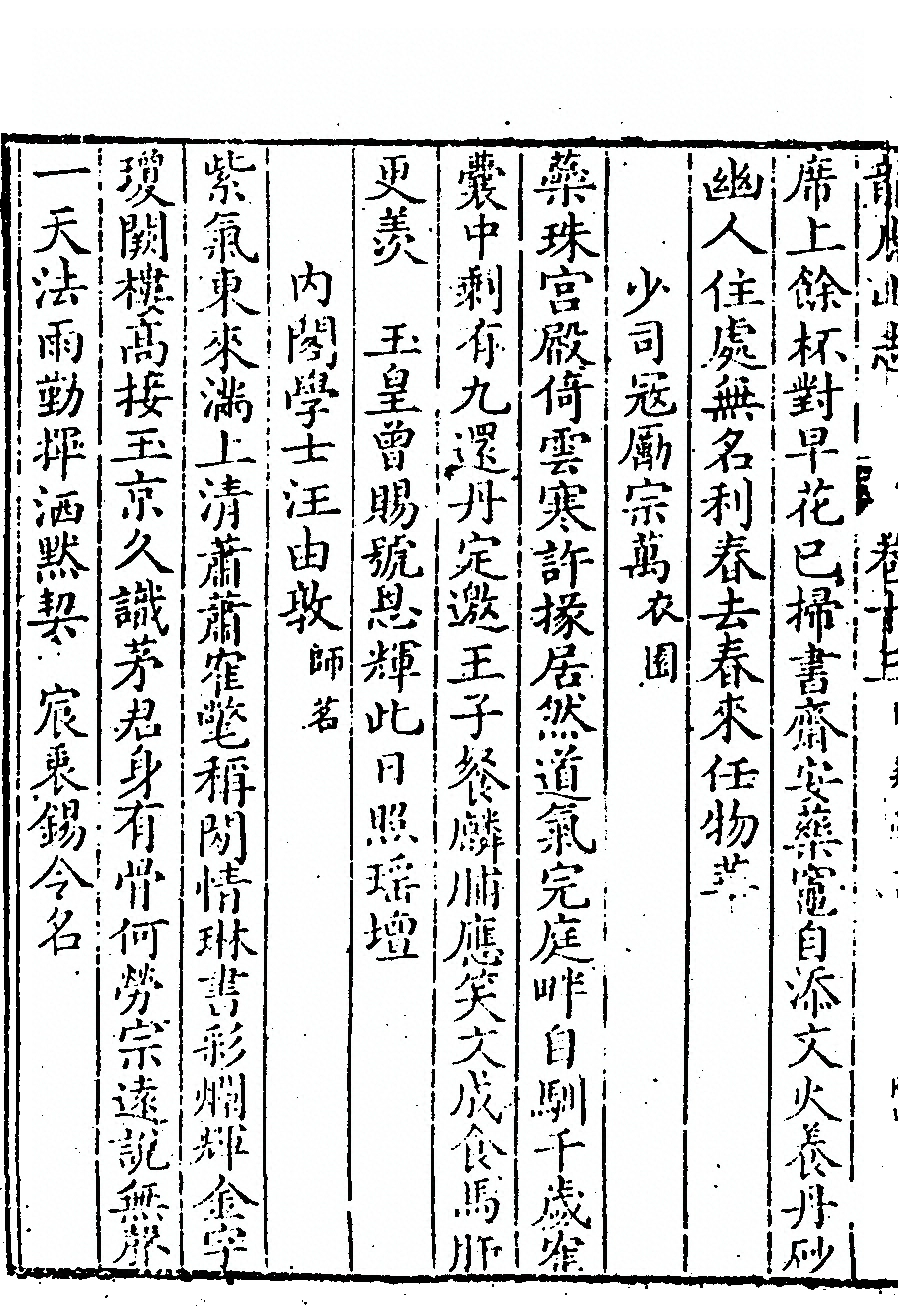 席上餘杯對早花已掃書齋安藥竈自添文火養丹砂
幽人住處無名利春去春來任物華
少司寇勵宗萬衣園
蘂珠宮殿倚雲寒許掾居然道氣完庭畔自馴千歲隺
囊中剩有九還丹定邀王子餐麟脯應笑文成食馬肝
更羨 玉皇曾賜號恩輝此日照瑶壇
内閣學士汪由敦師茗
紫氣東來滿上清蕭蕭隺氅稱閒情琳書彩爛輝金字
瓊闕樓高接玉京久識茅君身有骨何勞宗遠說無聲
一天法雨勤揮洒默契 宸衷錫令名